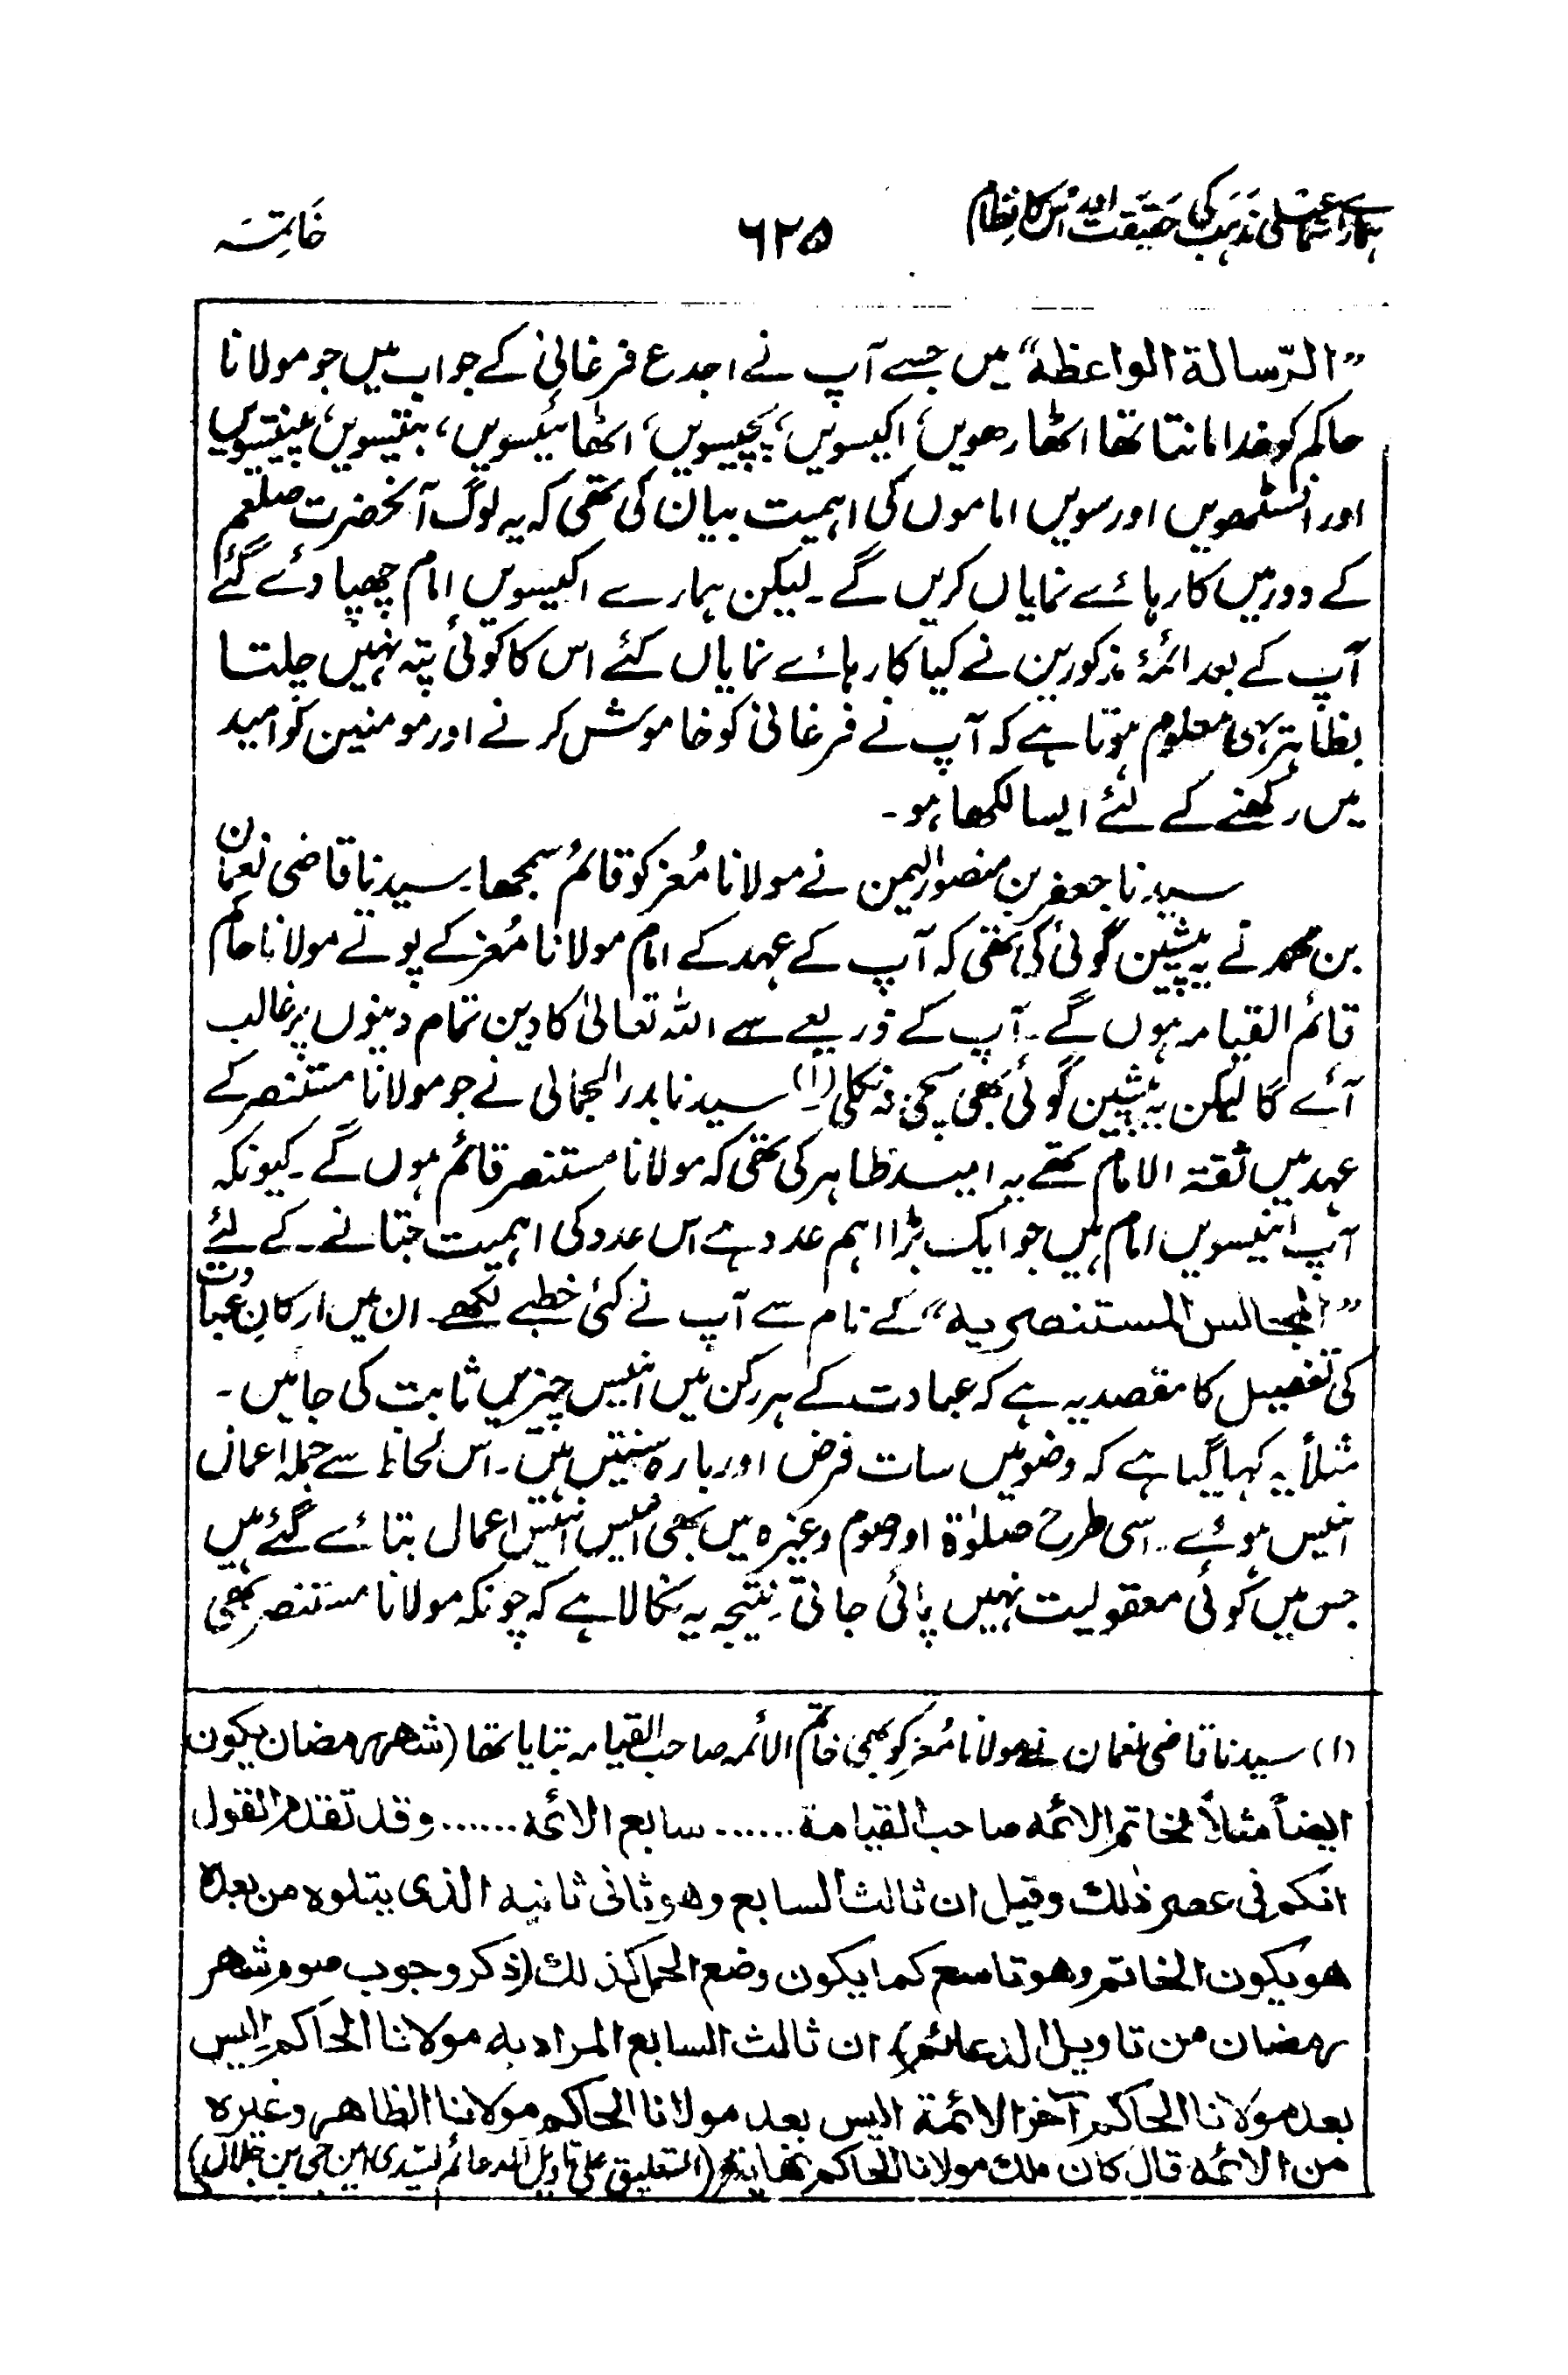 ہمارے اسماعیلی مذہب کی حقیقت اور اُس کا نظام
۶۲۵
خَاتِمَہ
”الرّسالۃ الواعظۃ“ میں جسے آپ نے اجدع فرغانی کے جواب میں جو مولانا
حاکم کو خدا مانتا تھا اٹھارھویں، اکیسویں، پچیسویں، اٹھائیسویں، بتیسویں، پینتیسویں
اور انسٹھویں اور سویں اماموں کی اہمیت بیان کی تھی کہ یہ لوگ آنحضرت صلعم
کے دور میں کارہائے نمایاں کریں گے۔ لیکن ہمارے اکیسویں امام چھپا دئے گئے
آپ کے بعد ائمۂ مذکورین نے کیا کارہائے نمایاں کئے اس کا کوئی پتہ نہیں چلتا
بظاہر یہی معلوم ہوتا ہے کہ آپ نے فرغانی کو خاموش کرنے اور مومنین کو امید
میں رکھنے کے لئے ایسا لکھا ہو۔
سیدنا جعفر بن منصور الیمن نے مولانا مُعز کو قائم سمجھا۔ سیدنا قاضی نعمان
بن محمد نے یہ پیشین گوئی کی تھی کہ آپ کے عہد کے امام مولانا مُعز کے پوتے مولانا حاکم
قائم القیامہ ہوں گے۔ آپ کے ذریعے سے اللہ تعالیٰ کا دین تمام دینوں پر غالب
آئے گا لیکن یہ پیشین گوئی بھی سچی نہ نکلی (۱) سیدنا بدر الجمالی نے جو مولانا مستنصر کے
عہد میں ثقۃ الامام تھے یہ امید ظاہر کی تھی کہ مولانا مستنصر قائم ہوں گے۔ کیونکہ
آپ انیسویں امام ہیں جو ایک بڑا اہم عدد ہے اس عدد کی اہمیت جتانے۔ کے لئے
”المجالس المستنصریہ“ کے نام سے آپ نے کئی خطبے لکھے۔ ان میں ارکانِ عبادت
کی تفصیل کا مقصد یہ ہے کہ عبادت کے ہر رکن میں انیس چیزیں ثابت کی جائیں۔
مثلاً یہ کہا گیا ہے کہ وضو میں سات فرض اور بارہ سنتیں ہیں۔ اس لحاظ سے جملہ اعمال
انیس ہوئے۔ اسی طرح صلوٰۃ اور صوم وغیرہ میں بھی انیس انیس اعمال بتائے گئے ہیں
جس میں کوئی معقولیت نہیں پائی جاتی۔ نتیجہ یہ نکالا ہے کہ چونکہ مولانا مستنصر بھی
(۱) سیدنا قاضی نعمان نے مولانا مُعز کو بھی خاتم الائمہ صاحب القیامہ بتایا تھا (شھر رمضان یکون
ایضاً مثلاً لخاتم الائمہ صاحب القیامۃ...... سابع الائمہ...... وقد تقدم القول
انکم فی عصر ذٰلک وقیل ان ثالث السابع وھو ثانی ثانیہ الذی یتلوہ من بعدہ
ھو یکون الخاتم وھو تاسع کما یکون وضع الحمل کذلک (ذکر وجوب صوم شھر
رمضان من تاویل الدعائم) ان ثالث السابع المراد بہ مولانا الحاکم الیس
بعد مولانا الحاکم آخر الائمۃ الیس بعد مولانا الحاکم مولانا الظاھر وغیرہ
من الائمہ قال کان ملک مولانا الحاکم (التعلیق علی تاویل الدعائم لسیدی امین جی بن جلال)